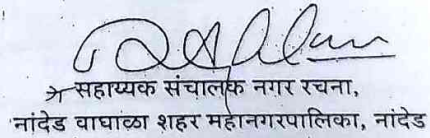 सहाय्यक संचालक नगर रचना,
नांदेड वाघाळा शहर महानगरपालिका, नांदेड